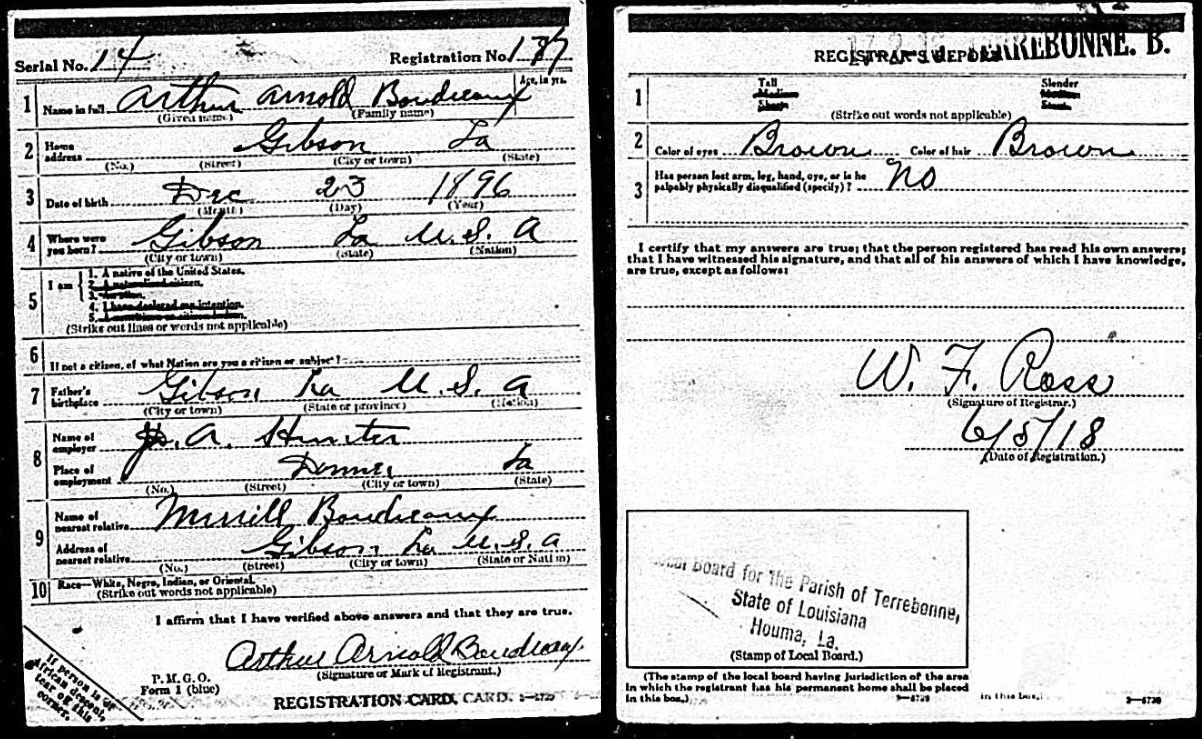 Serial No. 14 Registration No. 137
Age, in yrs.
1 Name in full Arthur Arnold Boudreaux
(Given name) (Family name)
2 Home address Gibson La
(No.) (Street) (City or town) (State)
3 Date of birth Dec 23 1896
(Month) (Day) (Year)
4 Where were you born? Gibson La U.S.A
(City or town) (State) (Nation)
5 I am
1. A native of the United States.
2. A naturalized citizen.
3. An alien.
4. I have declared my intention.
5.
(Strike out lines or words not applicable)
6 If not a citizen, of what Nation are you a citizen or subject?
7 Father's birthplace Gibson La U.S.A
(City or town) (State or province) (Nation)
8 Name of employer A. Hunter
Place of employment Donner La
(No.) (Street) (City or town) (State)
9 Name of nearest relative Merrill Boudreaux
Address of nearest relative Gibson La U.S.A
(No.) (Street) (City or town) (State or Nation)
10 Race—White, Negro, Indian, or Oriental.
(Strike out words not applicable)
I affirm that I have verified above answers and that they are true.
Arthur Arnold Boudreaux
(Signature or Mark of Registrant.)
P. M. G. O.
Form 1 (blue)
REGISTRATION CARD. CARD.
If person is of
African descent,
tear off this
corner.
REGISTRAR'S REPORT TERREBONNE. B.
1 Tall Slender
Medium Medium
Short Stout
(Strike out words not applicable)
2 Color of eyes Brown Color of hair Brown
3 Has person lost arm, leg, hand, eye, or is he
palpably physically disqualified (specify)? No
I certify that my answers are true; that the person registered has read his own answers;
that I have witnessed his signature, and that all of his answers of which I have knowledge,
are true, except as follows:
W. F. Ross
(Signature of Registrar.)
6/5/18
(Date of Registration.)
Local Board for the Parish of Terrebonne,
State of Louisiana
Houma, La.
(Stamp of Local Board.)
(The stamp of the local board having jurisdiction of the area
in which the registrant has his permanent home shall be placed
in this box.) 3—6739 in this box.) 3—6739